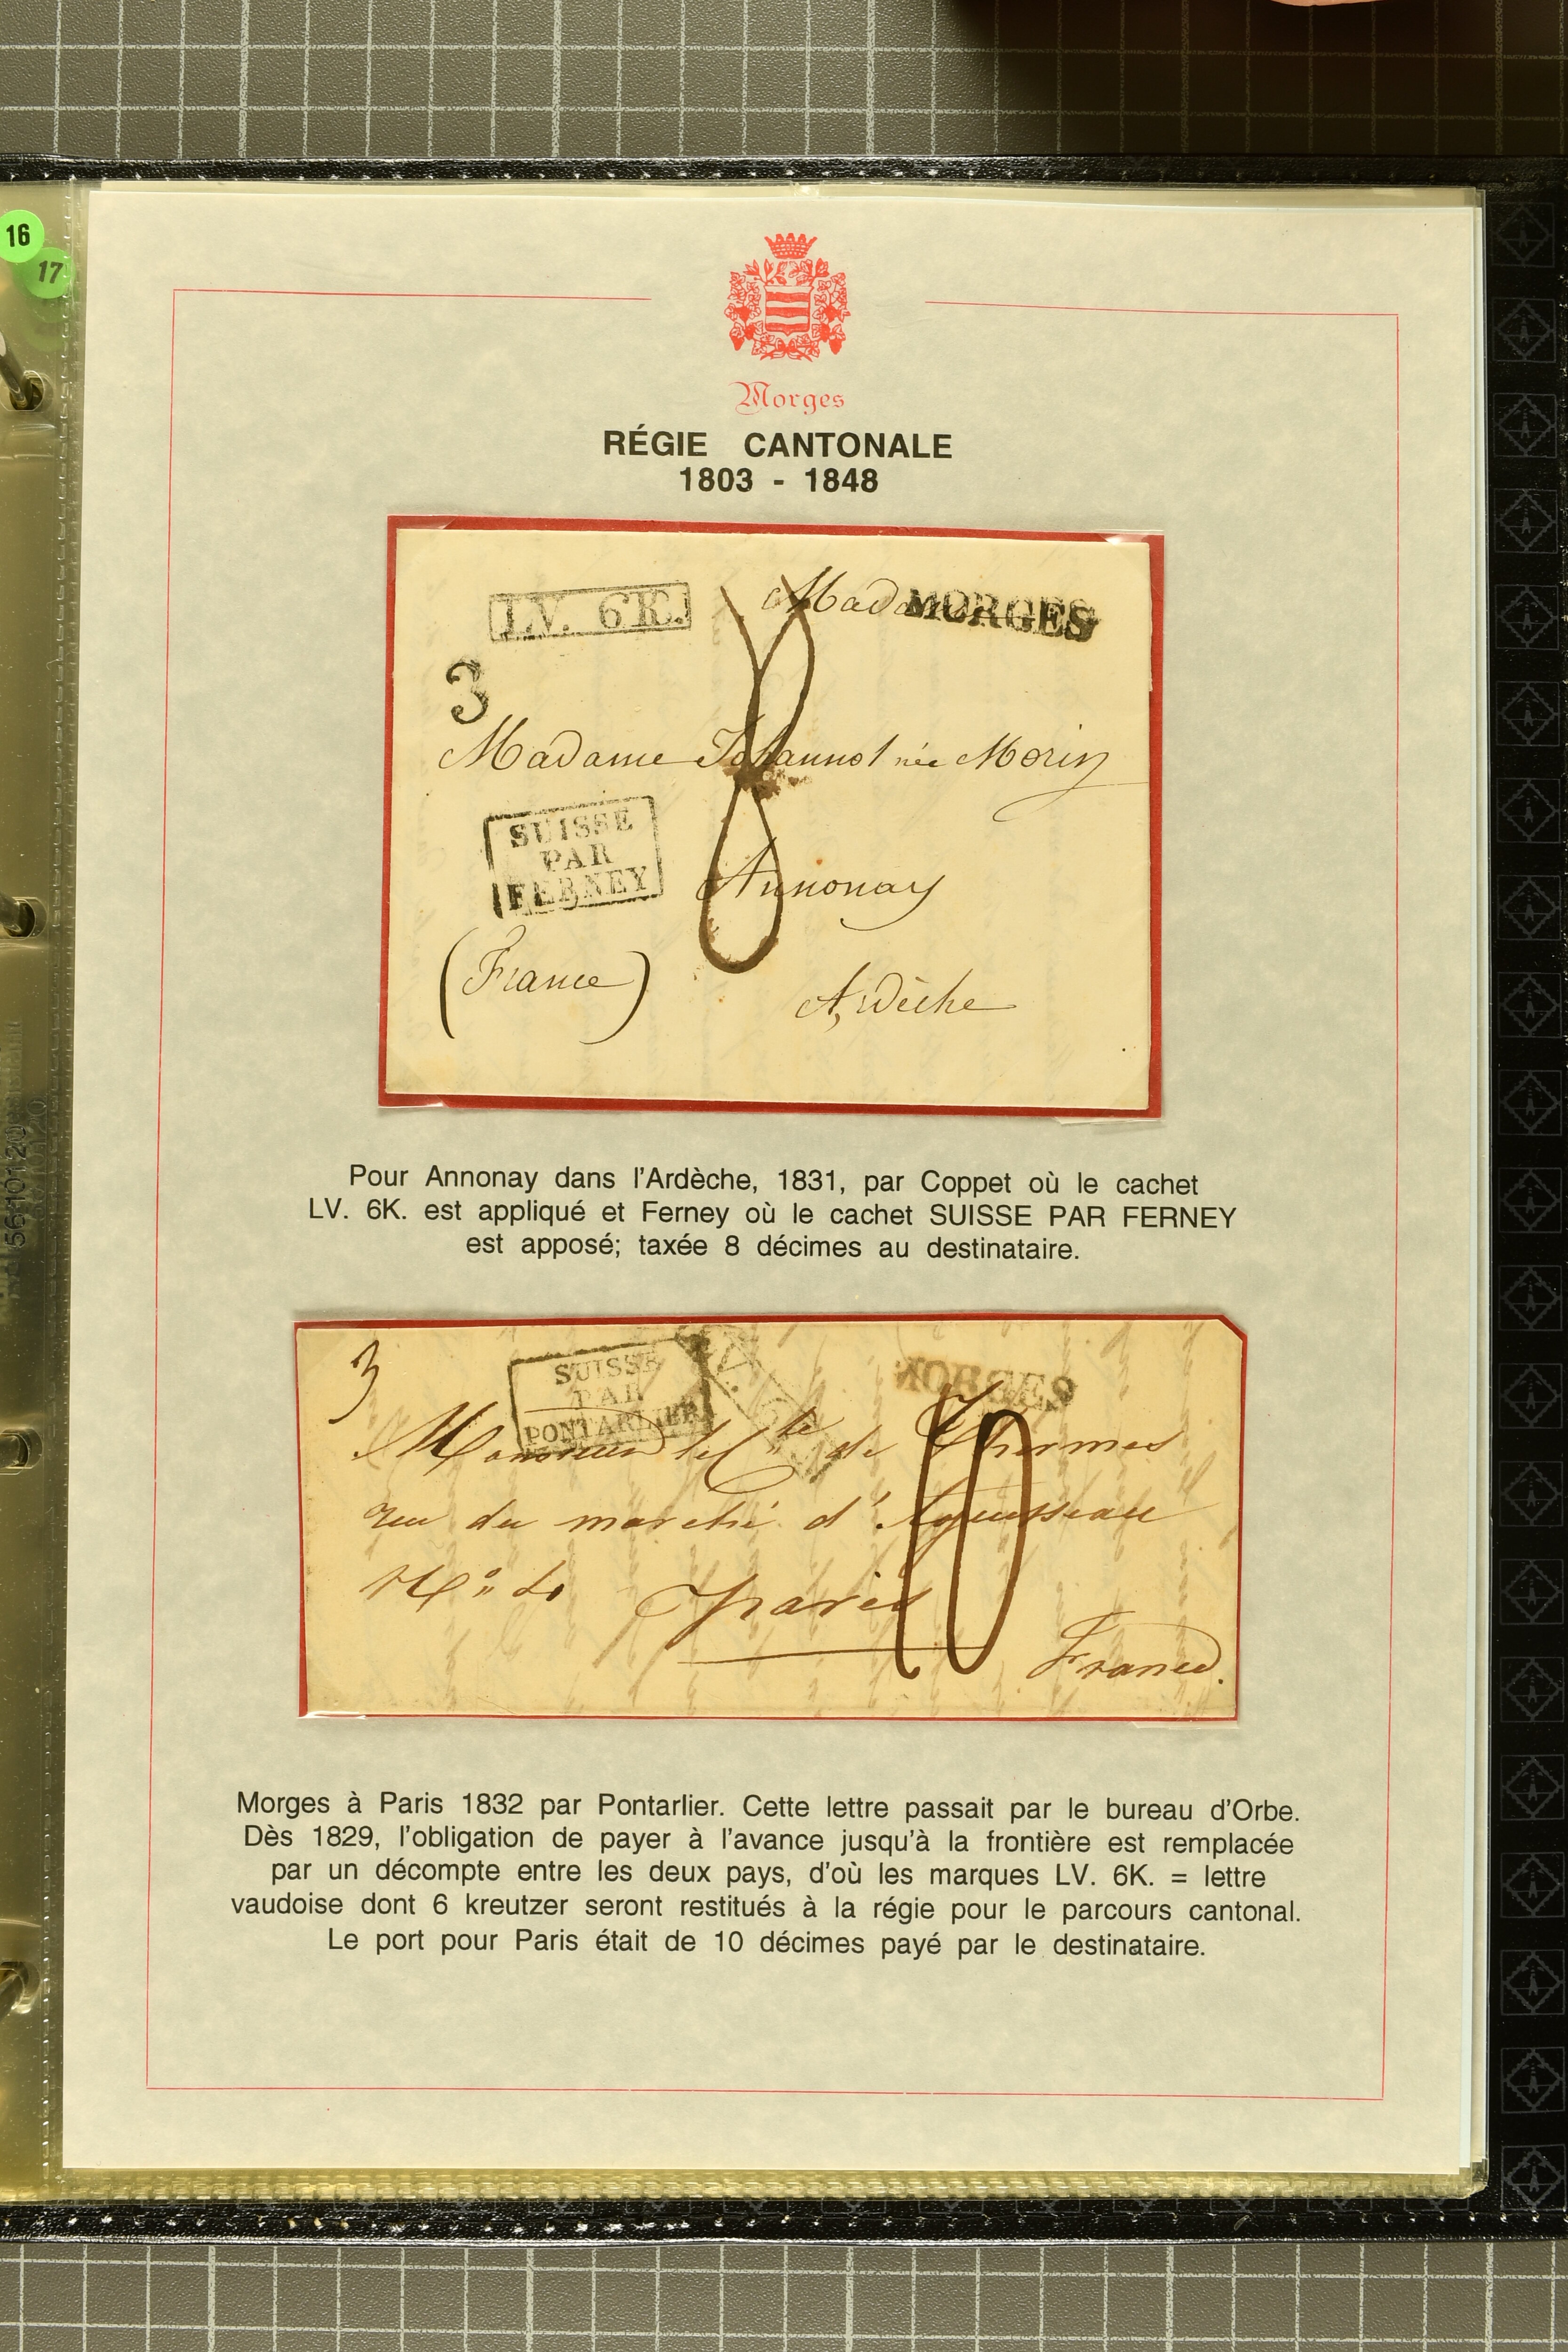 16
17
Morges
RÉGIE CANTONALE
1803 - 1848
LV. 6K.
Madame
MORGES
3
Madame Johannot née Morin
SUISSE
PAR
FERNEY
8
Annonay
(France)
Ardèche
Pour Annonay dans l'Ardèche, 1831, par Coppet où le cachet
LV. 6K. est appliqué et Ferney où le cachet SUISSE PAR FERNEY
est apposé; taxée 8 décimes au destinataire.
3
SUISSE
PAR
PONTARLIER
MORGES
Monsieur le Cte de Thermes
rue du marché d'Aguesseau
10
Paris
France.
Morges à Paris 1832 par Pontarlier. Cette lettre passait par le bureau d'Orbe.
Dès 1829, l'obligation de payer à l'avance jusqu'à la frontière est remplacée
par un décompte entre les deux pays, d'où les marques LV. 6K. = lettre
vaudoise dont 6 kreutzer seront restitués à la régie pour le parcours cantonal.
Le port pour Paris était de 10 décimes payé par le destinataire.